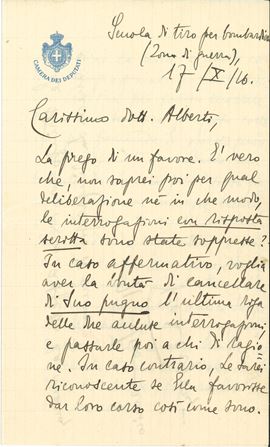 CAMERA DEI DEPUTATI
Scuola di tiro per bombardieri
(Zona di guerra),
17/X/16.
Carissimo dott. Alberti,
La prego di un favore. E' vero
che, non saprei poi per qual
deliberazione nè in che modo,
le interrogazioni con risposta
scritta sono state soppresse?
In caso affermativo, voglia
aver la bontà di cancellare
di Suo pugno l'ultima riga
delle tre accluse interrogazioni,
e passarle poi a chi di ragio
ne. In caso contrario, Le sarei
riconoscente se Ella favorisse
dar loro corso così come sono.